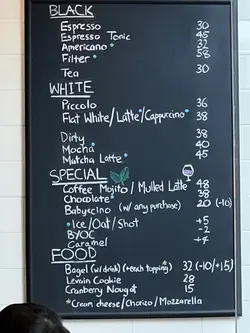 BLACK
Espresso 30
Espresso Tonic 45
Americano* 32
Filter* 58
Tea 30
WHITE
Piccolo 36
Flat White/Latte*/Cappuccino* 38
Dirty 38
Mocha* 40
Matcha Latte* 45
SPECIAL
Coffee Mojito / Mulled Latte* 48
Chocolate* 38
Babyccino (w/ any purchase) 20 (-10)
*Ice/Oat/Shot +5
BYOC -2
Caramel +4
FOOD
Bagel (w/ drink) (+each topping*) 32 (-10/+15)
Lemon Cookie 28
Cranberry Nougat 15
*Cream cheese/Chorizo/Mozzarella